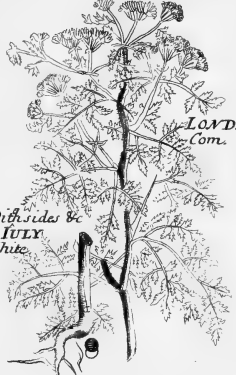 LOND
Com.
ith sides &c
IULY
hite